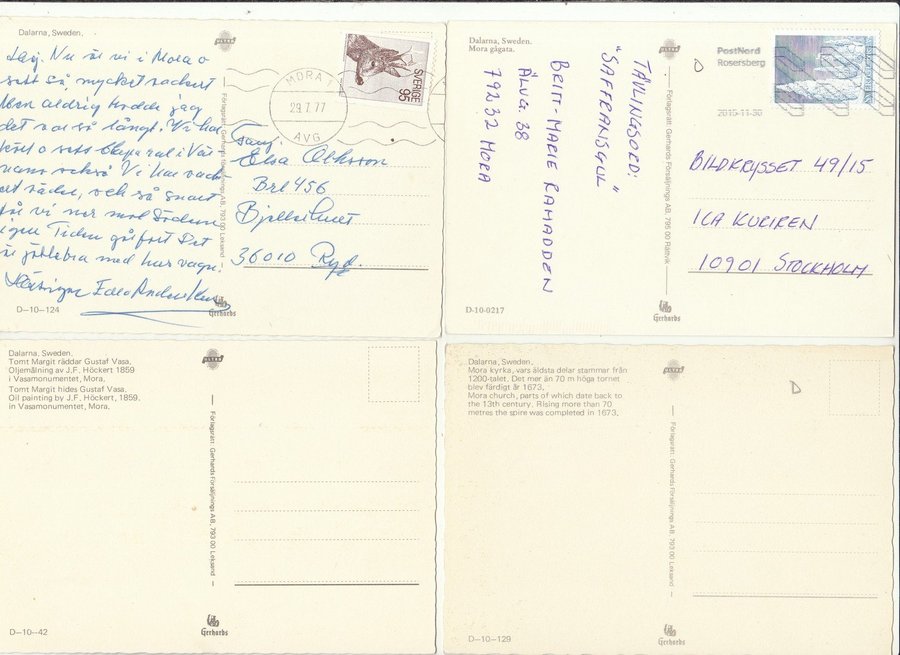 Dalarna, Sweden.
ULTRA
Nu är vi i Mora o
sett så mycket vackert
Men aldrig trodde jag
det var så långt. Vi har
också Vi har
och så snart
får vi
igen Tiden går fort Det
är med
D–10–124
Förlagsrätt: Gerhards Försäljnings AB, 793 00 Leksand
Gerhards
MORA 1
29.7.77
AVG
SVERIGE
95
Elsa
Brl 456
36010 Ryd.
Dalarna, Sweden.
Mora gågata.
ULTRA
TÄVLINGSORD:
"SAFFRANSGUL"
BRITT-MARIE RAMADDEN
ÄLVG. 38
79232 MORA
D-10-0217
Förlagsrätt: Gerhards Försäljnings AB, 795 00 Rättvik
Gerhards
PostNord
Rosersberg
2015-11-30
BILDKRYSSET 49/15
ICA KURIREN
10901 STOCKHOLM
Dalarna, Sweden.
Tomt Margit räddar Gustaf Vasa.
Oljemålning av J.F. Höckert 1859
i Vasamonumentet, Mora.
Tomt Margit hides Gustaf Vasa.
Oil painting by J.F. Höckert, 1859.
in Vasamonumentet, Mora.
ULTRA
Förlagsrätt: Gerhards Försäljnings AB, 793 00 Leksand
D–10–42
Gerhards
Dalarna, Sweden.
Mora kyrka, vars äldsta delar stammar från
1200-talet. Det mer än 70 m höga tornet
blev färdigt år 1673.
Mora church, parts of which date back to
the 13th century. Rising more than 70
metres the spire was completed in 1673.
ULTRA
Förlagsrätt: Gerhards Försäljnings AB, 793 00 Leksand
D–10–129
Gerhards